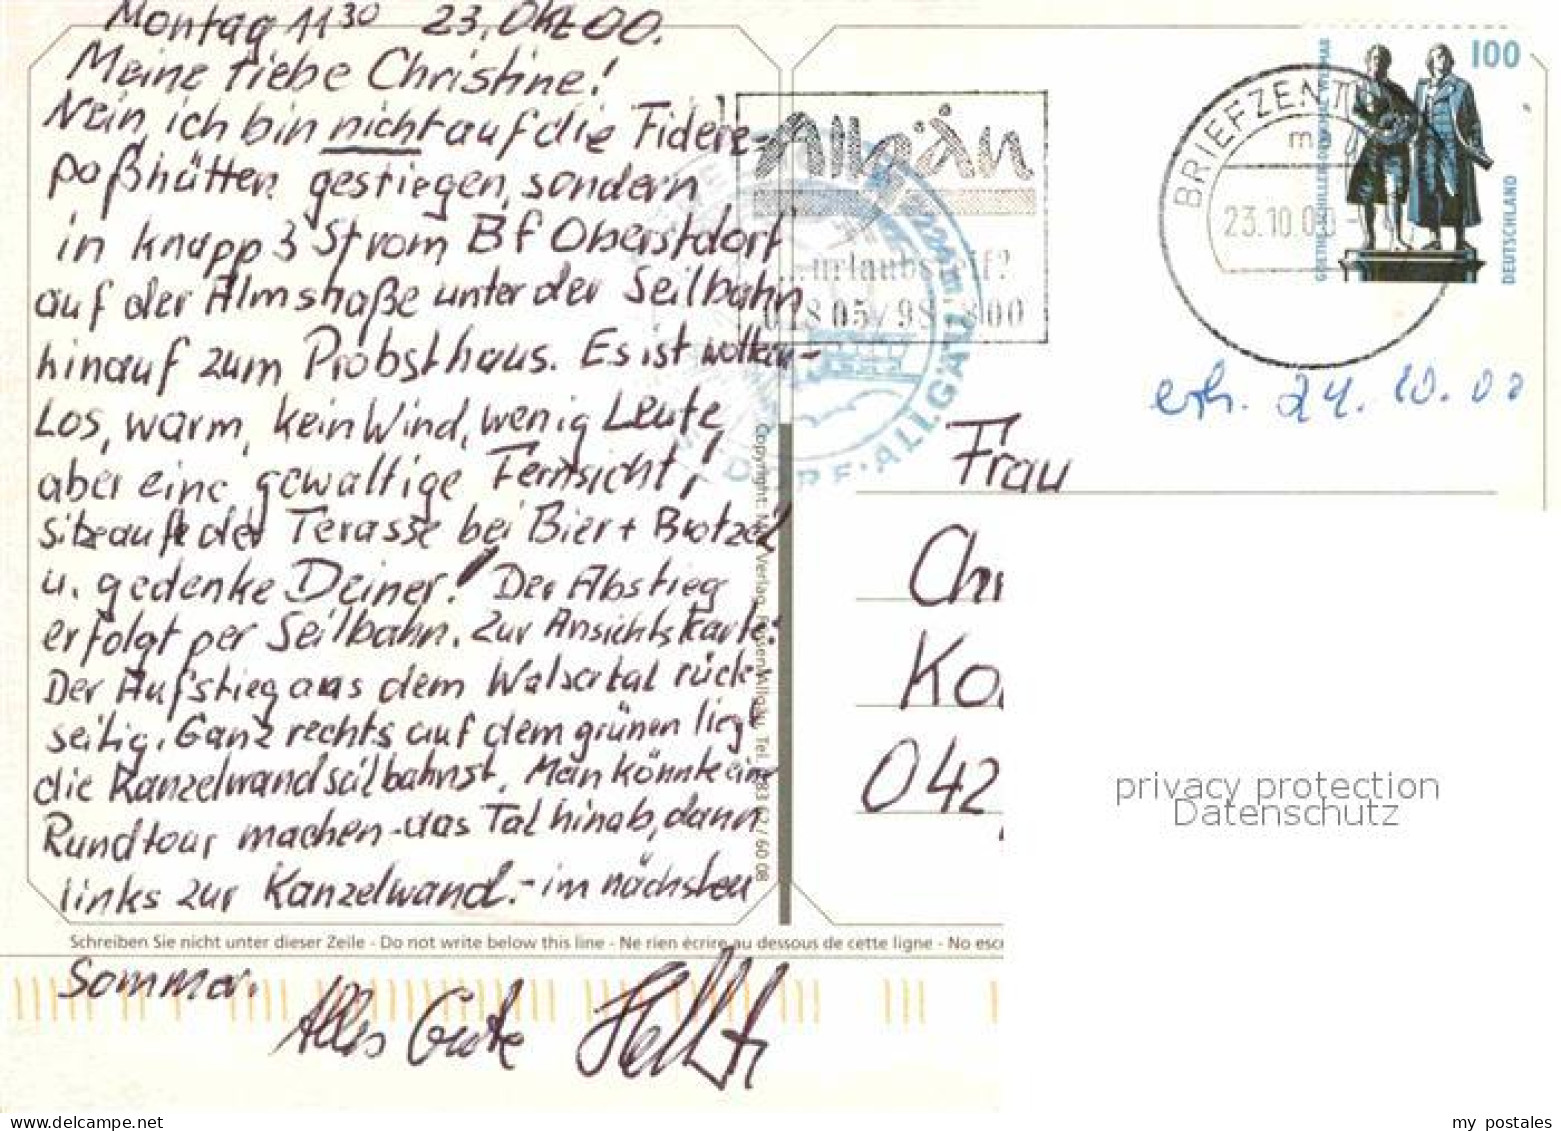 Montag 11 30 23. Okt 00.
Meine liebe Christine!
Nein, ich bin nicht auf die Fidere-
paßhütten gestiegen, sondern
in knapp 3 St vom Bf Oberstdorf
auf der Almstraße unter der Seilbahn
hinauf zum Probsthaus. Es ist wolken-
Los, warm, kein Wind, wenig Leute,
aber eine gewaltige Fernsicht!
sitze auf der Terasse bei Bier + Brotzeit
u. gedenke Deiner! Der Abstieg
erfolgt per Seilbahn. Zur Ansichtskarte:
Der Aufstieg aus dem Walsertal rück-
seitig. Ganz rechts auf dem grünen liegt
die Kanzelwandseilbahnst. Man könnte eine
Rundtour machen - das Tal hinab, dann
links zur Kanzelwand. - im nächsten
Schreiben Sie nicht unter dieser Zeile - Do not write below this line - Ne rien écrire au dessous de cette ligne - No escr
Sommer.
Alles Gute
Copyright: Verlag, Füssen/Allgäu, Tel. 08362 / 60 08
Allgäu
...urlaubsreif?
BRIEFZENT
23.10.00
ALLGÄU
100
DEUTSCHLAND
GOETHE-SCHILLER-DENKMAL WEIMAR
erh. 24.10.00
Frau
Chr
Ko
042
privacy protection
Datenschutz
my postales